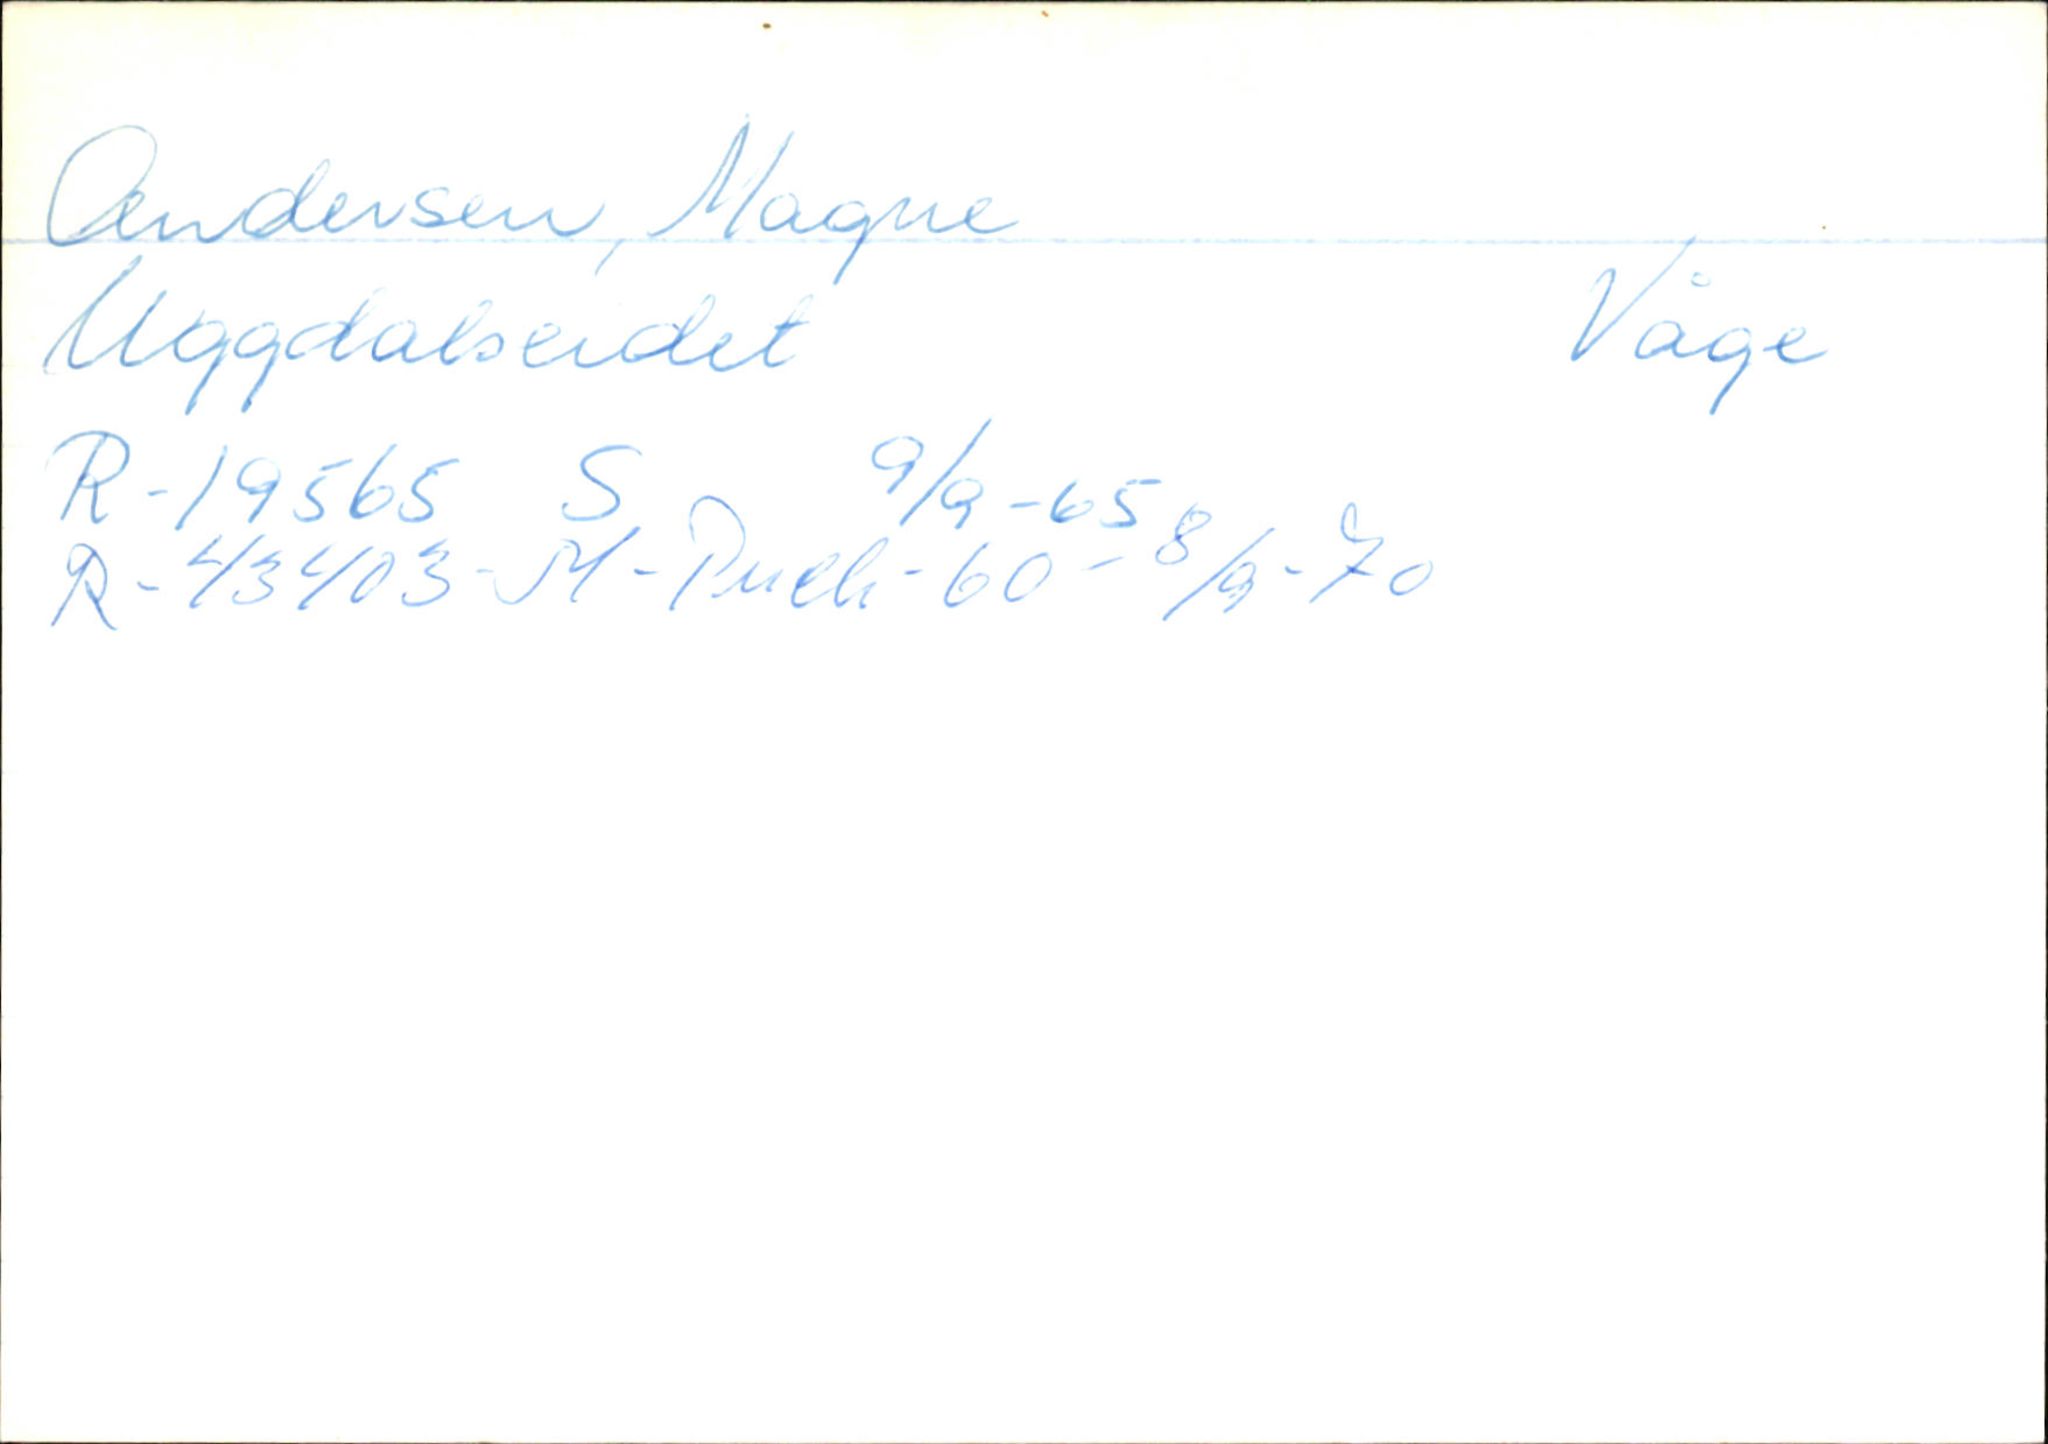 Andersen, Magne
Uggdalseidet Våge
R-19565 S 9/9-65
R-43403-M-Puch-60-8/9-70